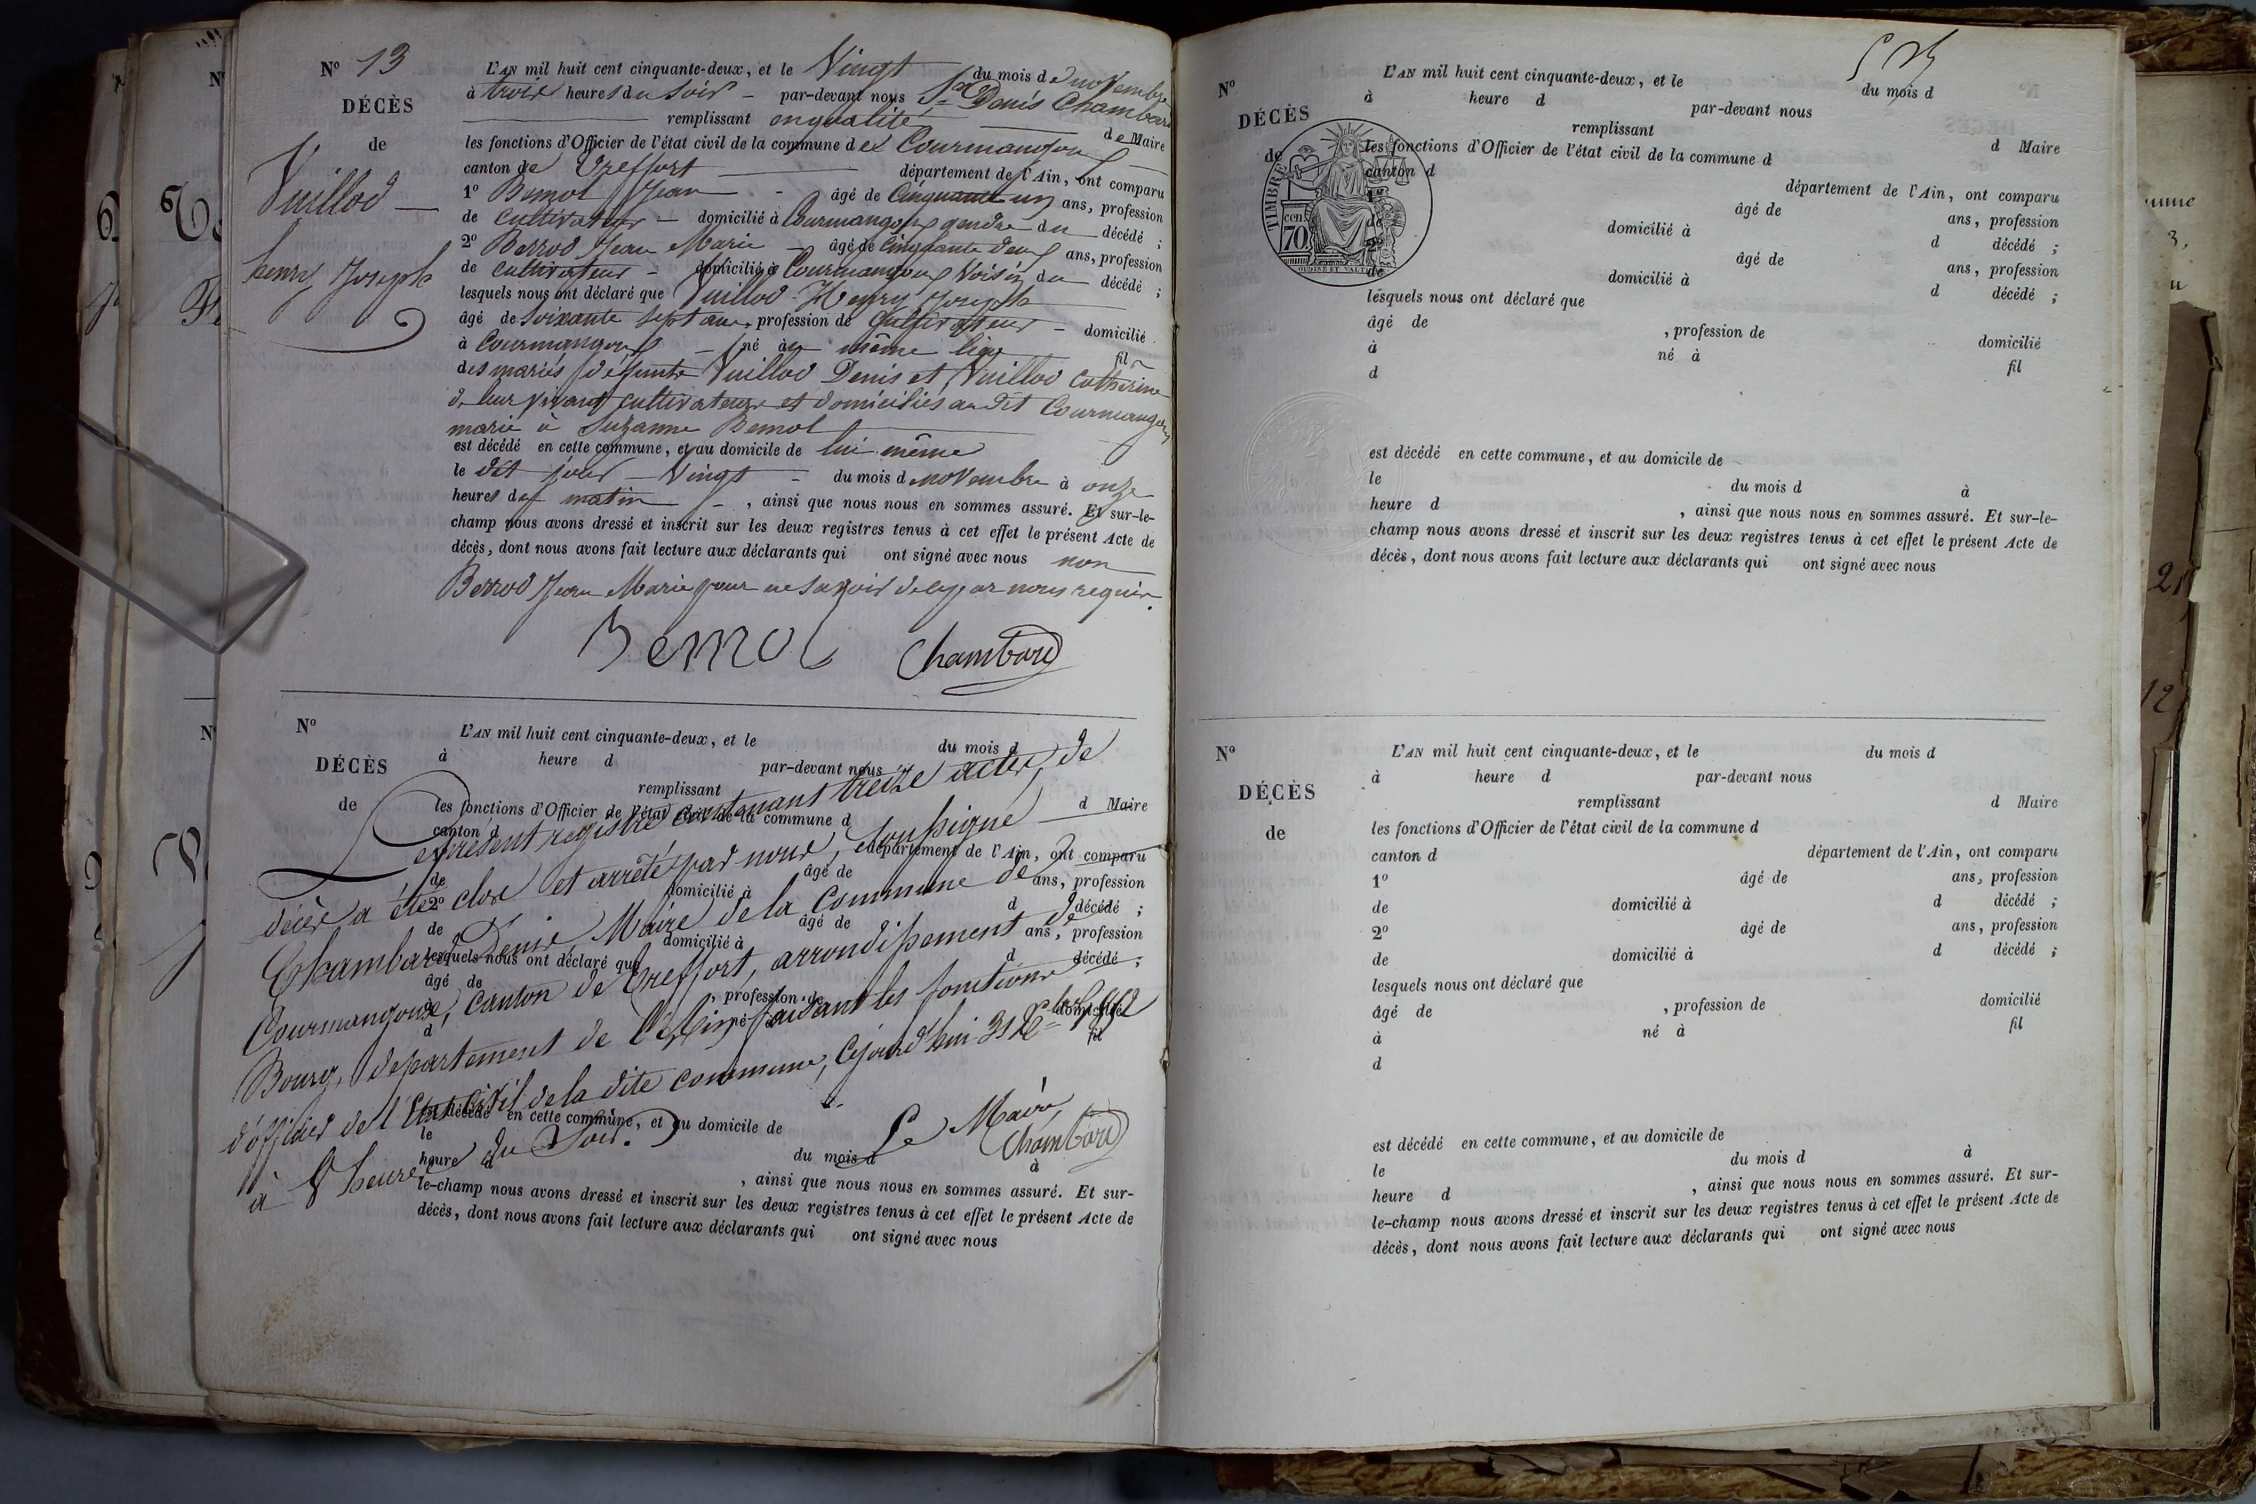 N° 13
DÉCÈS
de
Vuillod
henry Joseph
L'AN mil huit cent cinquante-deux, et le Vingt du mois de novembre
à trois heures du soir par-devant nous Sr Denis Chambard
remplissant en qualité de Maire
les fonctions d'Officier de l'état civil de la commune de Courmangoux
canton de Treffort département de l'Ain, ont comparu
1° Bemol Jean âgé de Cinquante un ans, profession
de cultivateur domicilié à Courmangoux gendre du décédé ;
2° Berrod Jean Marie âgé de Cinquante deux ans, profession
de cultivateur domicilié à Courmangoux Voisin du décédé ;
lesquels nous ont déclaré que Vuillod Henry Joseph
âgé de Soixante sept ans, profession de Cultivateur domicilié
à Courmangoux né au même lieu fils
des mariés défunts Vuillod Denis et Vuillod Catherine
de leur vivant cultivateurs et domiciliés au dit Courmangoux
marié à Suzanne Bemol
est décédé en cette commune, et au domicile de lui même
le dit jour Vingt du mois de novembre à onze
heures du matin, ainsi que nous nous en sommes assuré. Et sur-le-
champ nous avons dressé et inscrit sur les deux registres tenus à cet effet le présent Acte de
décès, dont nous avons fait lecture aux déclarants qui ont signé avec nous non
Berrod Jean Marie pour ne savoir de ce par nous requis.
Bemol Chambard
N°
DÉCÈS
de
L'AN mil huit cent cinquante-deux, et le du mois d
à heure d par-devant nous
remplissant d Maire
les fonctions d'Officier de l'état civil de la commune d
canton d département de l'Ain, ont comparu
de âgé de ans, profession
domicilié à d décédé ;
2° âgé de ans, profession
de domicilié à d décédé ;
lesquels nous ont déclaré que
âgé de , profession de domicilié
à né à fil
d
est décédé en cette commune, et au domicile de
le du mois d à
heure d , ainsi que nous nous en sommes assuré. Et sur-
le-champ nous avons dressé et inscrit sur les deux registres tenus à cet effet le présent Acte de
décès, dont nous avons fait lecture aux déclarants qui ont signé avec nous
Le présent registre contenant treize actes, de
décès a été clos et arrêté par nous, soussigné
Chambard Denis, Maire de la Commune de
Courmangoux, canton de Treffort, arrondissement de
Bourg, département de l'Ain, faisant les fonctions
d'officier de l'Etat civil de la dite commune, Cejourd'hui 31 Xbre 1852
à 8 heures du Soir.
Le Maire
Chambard
N°
DÉCÈS
de
TIMBRE
cen
70
L'AN mil huit cent cinquante-deux, et le du mois d
à heure d par-devant nous
remplissant d Maire
les fonctions d'Officier de l'état civil de la commune d
canton d département de l'Ain, ont comparu
âgé de ans, profession
domicilié à d décédé ;
âgé de ans, profession
de domicilié à d décédé ;
lesquels nous ont déclaré que
âgé de , profession de domicilié
à né à fil
d
est décédé en cette commune, et au domicile de
le du mois d à
heure d , ainsi que nous nous en sommes assuré. Et sur-le-
champ nous avons dressé et inscrit sur les deux registres tenus à cet effet le présent Acte de
décès, dont nous avons fait lecture aux déclarants qui ont signé avec nous
N°
DÉCÈS
de
L'AN mil huit cent cinquante-deux, et le du mois d
à heure d par-devant nous
remplissant d Maire
les fonctions d'Officier de l'état civil de la commune d
canton d département de l'Ain, ont comparu
1° âgé de ans, profession
de domicilié à d décédé ;
2° âgé de ans, profession
de domicilié à d décédé ;
lesquels nous ont déclaré que
âgé de , profession de domicilié
à né à fil
d
est décédé en cette commune, et au domicile de
le du mois d à
heure d , ainsi que nous nous en sommes assuré. Et sur-
le-champ nous avons dressé et inscrit sur les deux registres tenus à cet effet le présent Acte de
décès, dont nous avons fait lecture aux déclarants qui ont signé avec nous